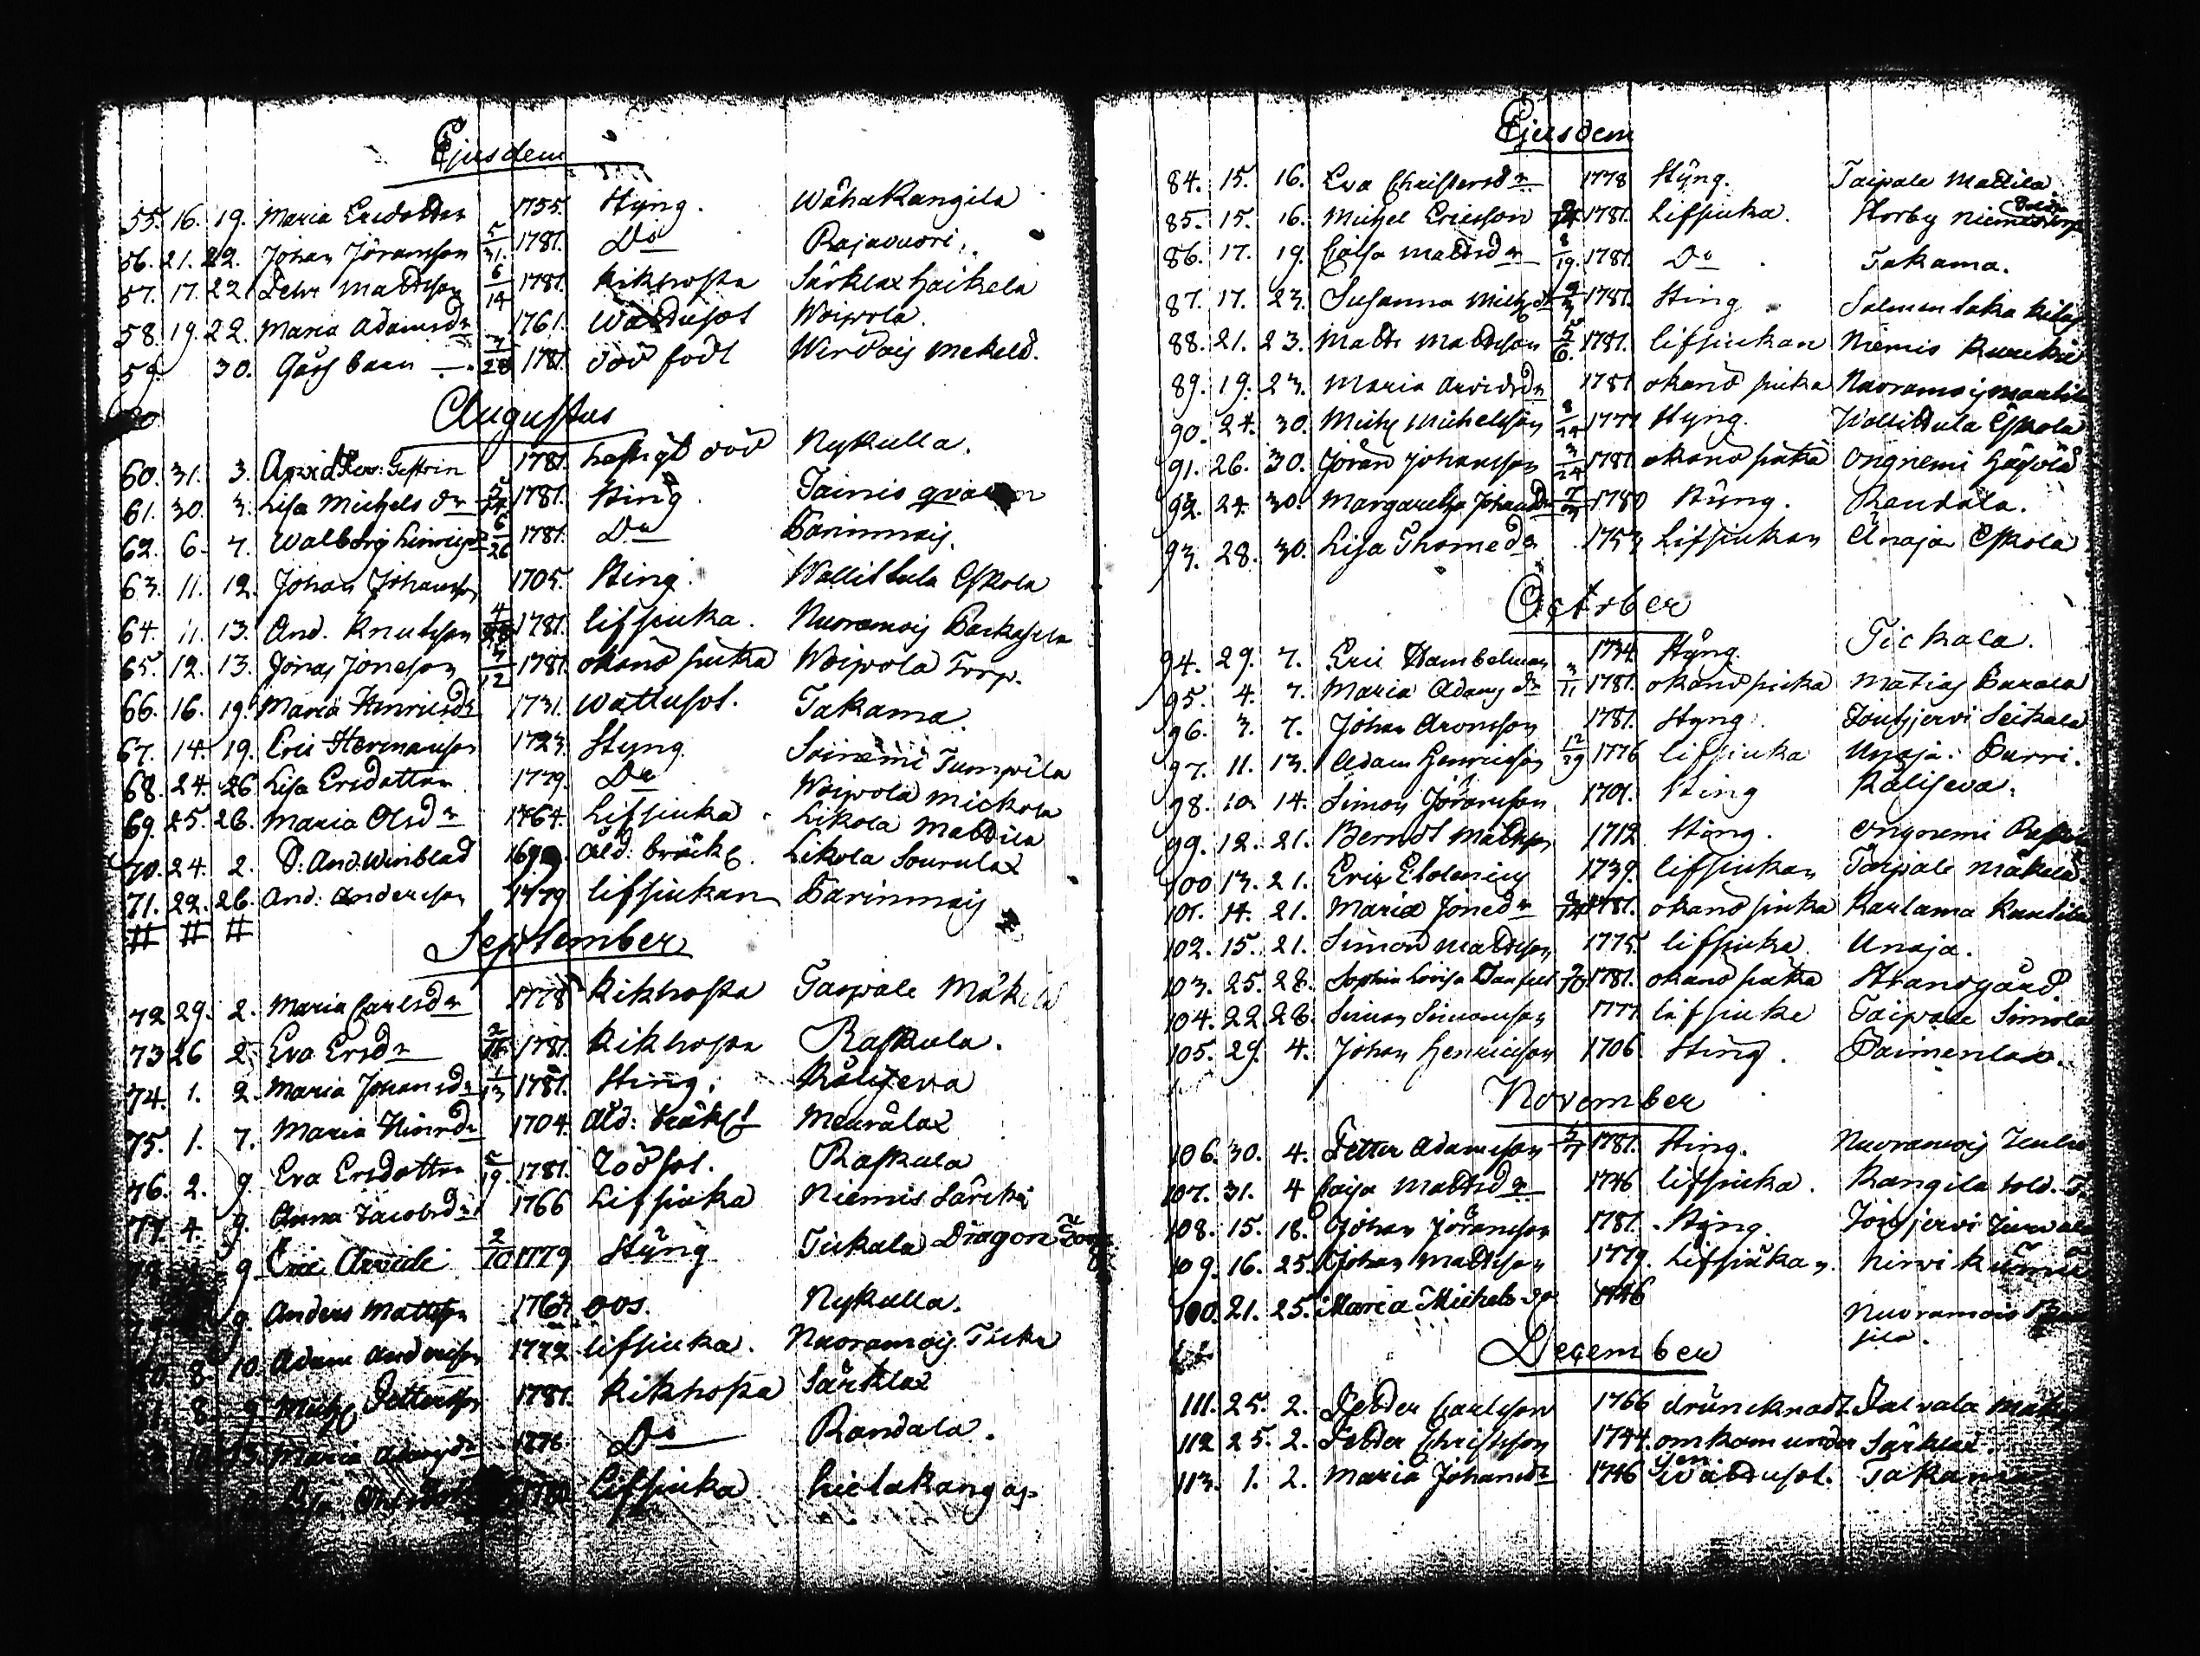 Ejusdem
55. 16. 19. Maria Ersdotter 1755. Styng. Wähakangila
56. 21. 22. Johan Jöransson 5/31. 1781. Do Rajavuori.
57. 17. 22. Petter Mattsson 6/14 1781. Kikhosta Särklax Haikela
58. 19. 22. Maria Adamsdr 1761. Wattusot Woipola.
59. 30. Gåss barn 7/28 1781. död födt Wirdois Mekelä.
Augustus
60. 31. 3. Arvid 1781. hastigt död Nykulla.
61. 30. 3. Lisa Michelsdr 1781. Sting. Tainis
62. 6. 7. Walborg Hinricsdr 6/26 1781. Do Barinmais.
63. 11. 12. Johan Johansson 1705. Sting. Wallittula Eskola
64. 11. 13. And. Knutsson 1781. lifsiuka. Nuoramois Backasila
65. 12. 13. Jonas Joneson 7/12 1781. okänd siuka Woipola Torp.
66. 16. 19. Maria Henricsdr 1731. Wattusot. Takama.
67. 14. 19. Eric Hermansson 1723. Styng Soinemi Tumpila
68. 24. 26 Lisa Ersdotter 1779. Do Woipola Mickola
69. 25. 26. Maria Olsdr 1764. Lifsiuka. Likola Mattila
70. 24. 2. D: And. Winblad Åld: bräckl. Likola Sourulax
71. 22. 26. And: Andersson 1779 lifsiukan Barinmais
# # #
September
72 29. 2. Maria Carlsdr 1778 Kikhosta Taipale Mäkelä
73 26 2. Eva Ersdr 1781. Kikhosta Raskula.
74. 1. 2. Maria Johansdr 1/13 1781. Sting. Räliseva
75. 1. 7. Maria Hinrsdr 1704. Åld: bräckl Meurålax
76. 2. 9. Eva Ersdotter 5/19. 1781. Rödsot. Raskula
77. 4. 9. Anna Jacobsdr 1766 Lifsiuka Niemis Särcki
9. Eric Arvidi 2/10 1779 Styng Tickala Dragon Torp
9. Anders Mattsson 1763. Nykulla.
8. 10. Adam Andersson 1772 lifsiuka. Nuoramois Ticka
8. 9 Michel Pettersson 1781. Kikhosta Särklax
13. Maria Adamsdr 1776. Do Randala.
Lisa 1780 Lifsiuka hietakangas
Ejusdem
84. 15. 16. Eva Christersdr 1778 Styng. Taipale Mattila
85. 15. 16. Michel Ericsson 1781. Lifsiuka. Storby
86. 17. 19. Caisa Mattsdr 8/19. 1781. Do Takama.
87. 17. 23. Susanna Michelsdr 1781. Sting Salmenlaka
88. 21. 23. Matts Mattsson 5/6. 1781. lifsiukan Niemis Kurcki
89. 19. 23. Maria Arvidsdr 1781 okänd siuka Nuoramois Mattila
90. 24. 30. Michel Michelsson 8/24 1777 Styng. Wallittula Eskola
91. 26. 30. Jöran Johansson 3/24 1781. okänd siuka Ongnemi
92. 24. 30. Margaretha Johansdr 1780 Styng. Randala.
93. 28. 30. Lisa Thomedr 1753 Lifsiukan Unaja Eskola
October
94. 29. 7. Eric Stambelman 1734 Styng. Tickala.
95. 4. 7. Maria Adamsdr 3/11 1781. okänd siuka Matias
96. 3. 7. Johan Aronsson 1781. Styng. Joutsjervi Seikala
97. 11. 13. Adam Henricsson 12/29 1776 lifsiuka Unaja: Purri.
98. 10. 14. Simon Jöransson 1701. Sting Räliseva.
99. 12. 21. Berndt Mattsson 1712 Sting. Ongnemi
100 13. 21. Eric 1739. lifsiukan Taipale Mäkelä
101. 14. 21. Maria Jonedr 1781. okänd siuka Karlama
102. 15. 21. Simon Mattsson 1775. lifsiuka Unaja.
103. 25. 28. Sophia Lovisa 1781. okänd siuka Strandgård.
104. 22. 28. Simon Simonsson 1777 lifsiuka Taipale Simola
105. 29. 4. Johan Henricsson 1706. Sting. Paimenlax.
November
106. 30. 4. Petter Adamsson 1781. Sting. Nuoramois
107. 31. 4 Caisa Mattsdr 1746 lifsiuka. Kangila sold. T.
108. 15. 18. Johan Jöransson 1781. Styng. Joutsjervi
109. 16. 25. Johan Mattsson 1779. Lifsiukan. Nirvi
100. 21. 25. Maria Michelsdr 1746 Nuoramois
sila.
December
111. 25. 2. Petter Carlsson 1766 drunknadt.
112 25. 2. Petter Christsson 1744. omkom under isen Särklax.
113. 1. 2. Maria Johansdr 1746 Wattusot. Takama